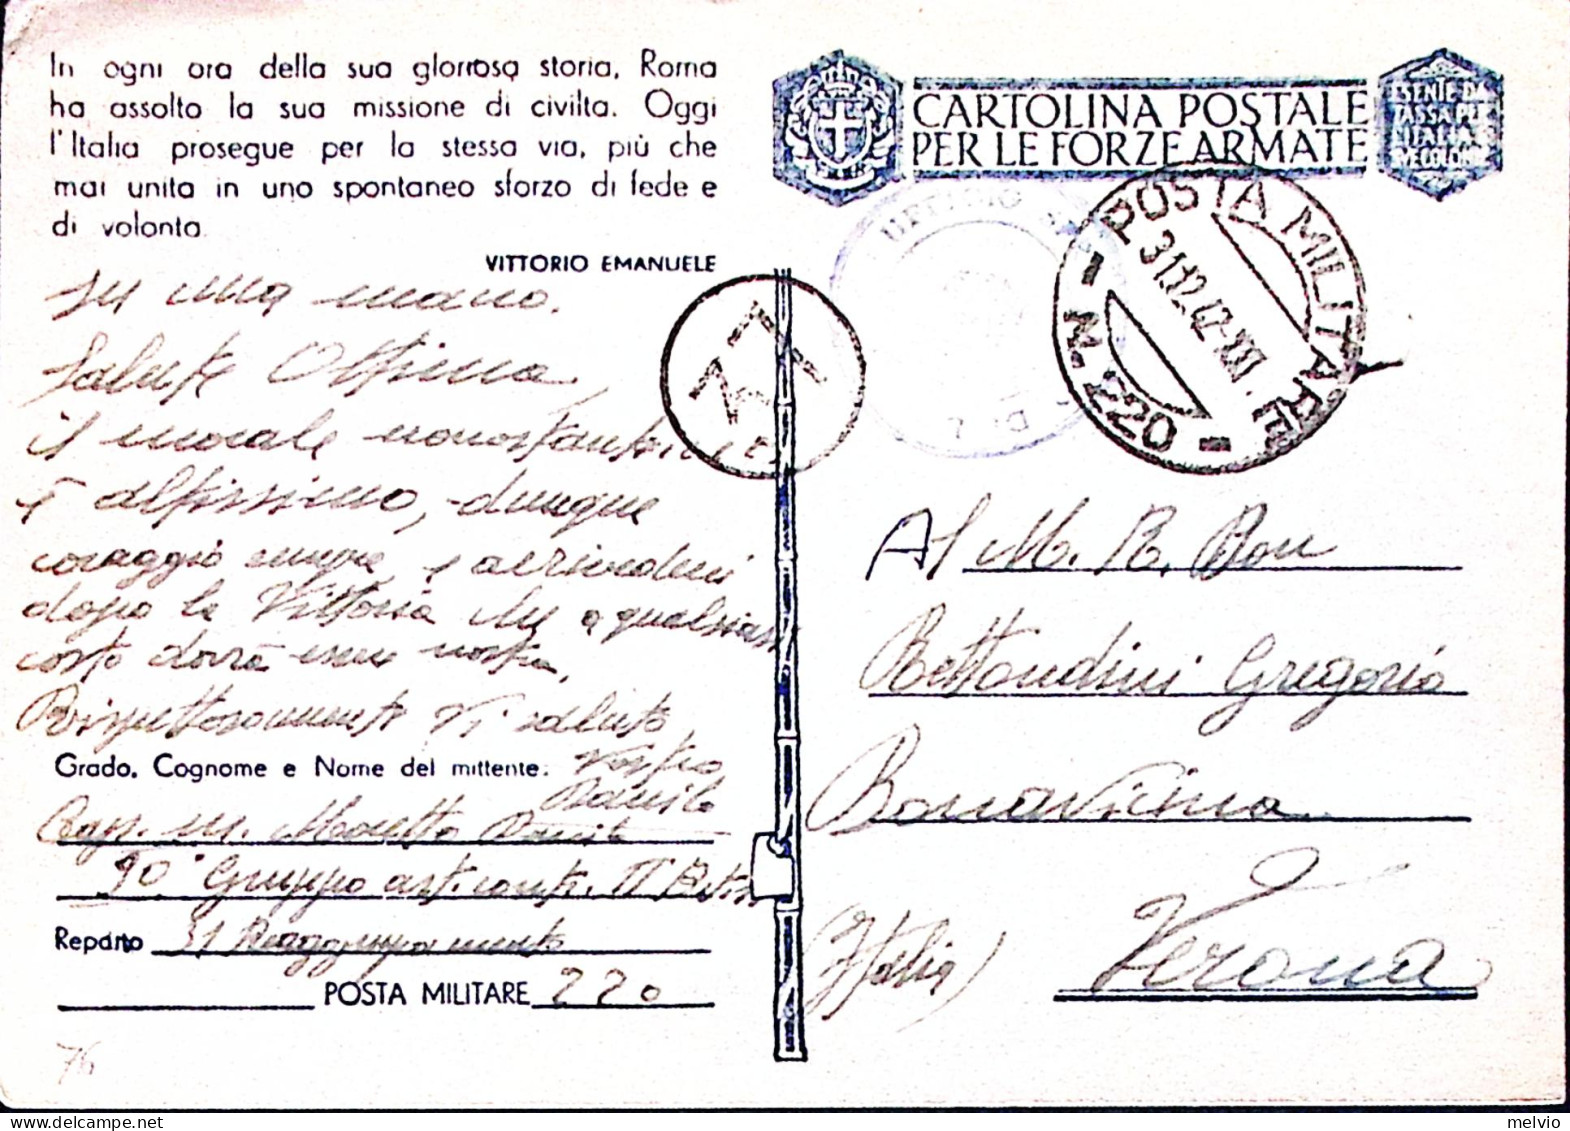 In ogni ora della sua gloriosa storia, Roma
ha assolto la sua missione di civilta. Oggi
l'Italia prosegue per la stessa via, più che
mai unita in uno spontaneo sforzo di fede e
di volonta.
VITTORIO EMANUELE
mano.
Salute Ottima,
il morale nonostante
è altissimo, dunque
coraggio e arrivederci
dopo la Vittoria che a qualsiasi
costo dovrà nostra.
Rispettosamente Vi saluto
Vostro
Danilo
Grado, Cognome e Nome del mittente:
Cap. m. Moretto Danilo
90° Gruppo art.
Reparto 31 Raggruppamento
POSTA MILITARE 220
76
CARTOLINA POSTALE
PER LE FORZE ARMATE
ESENTE DA
TASSA PER
L'ITALIA
E COLONIE
UFFICIO
POSTA MILITARE
N. 220
31.12.42-XXI
Al M. R. Don
Bettondini Gregorio
Bonavicina
Verona
(Italia)
melvio